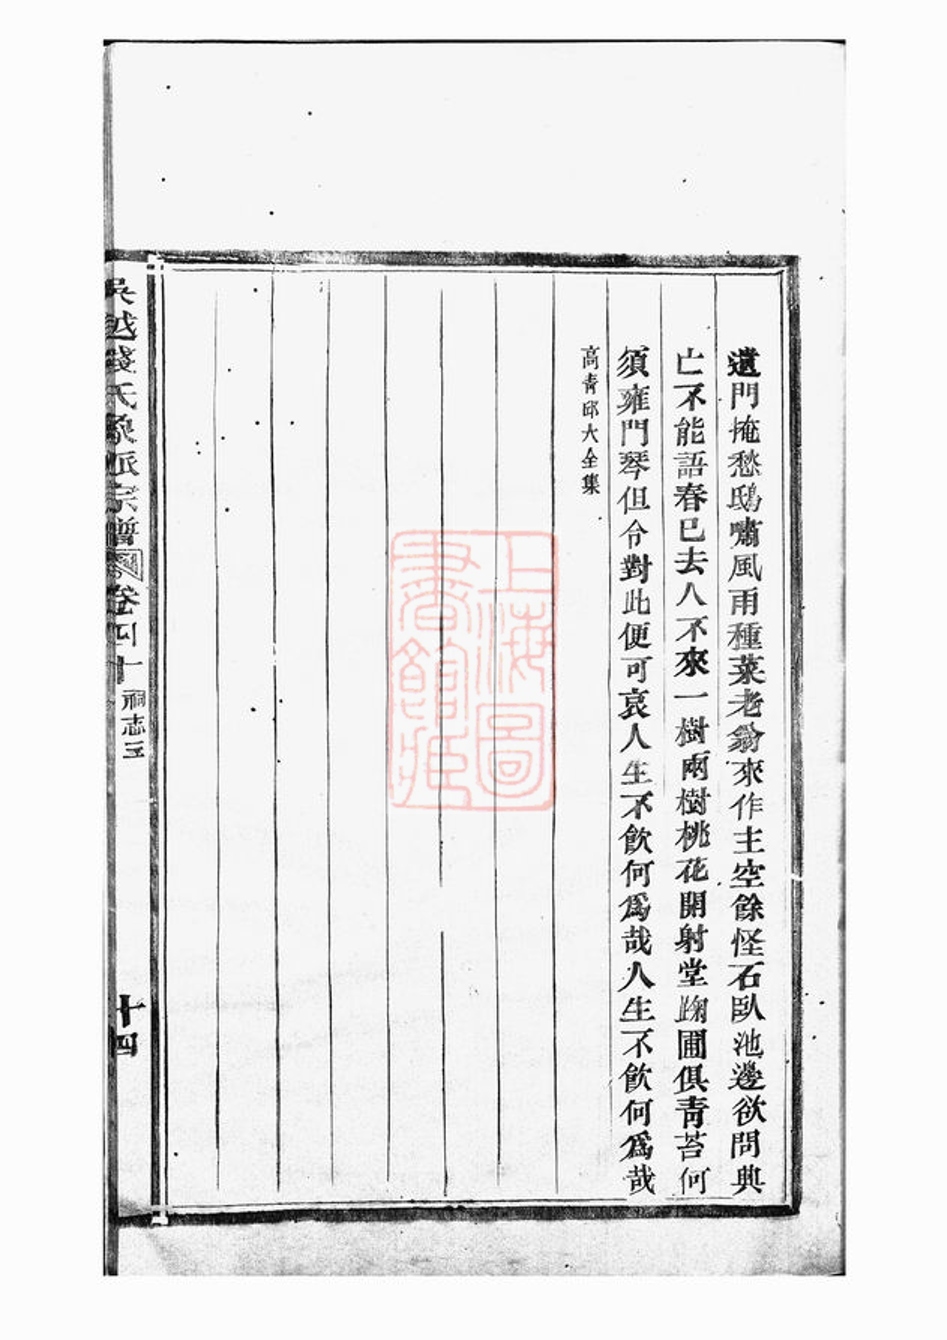 遺門掩愁鴟嘯風雨種菜老翁來作主空餘怪石臥池邊欲問興
亡不能語春已去人不來一樹兩樹桃花開射堂踘圃俱青苔何
須雍門琴但令對此便可哀人生不飲何爲哉人生不飲何爲哉
高青邱大全集
吳越錢氏象派宗譜 卷四十 祠志三
十四
上海圖書館藏